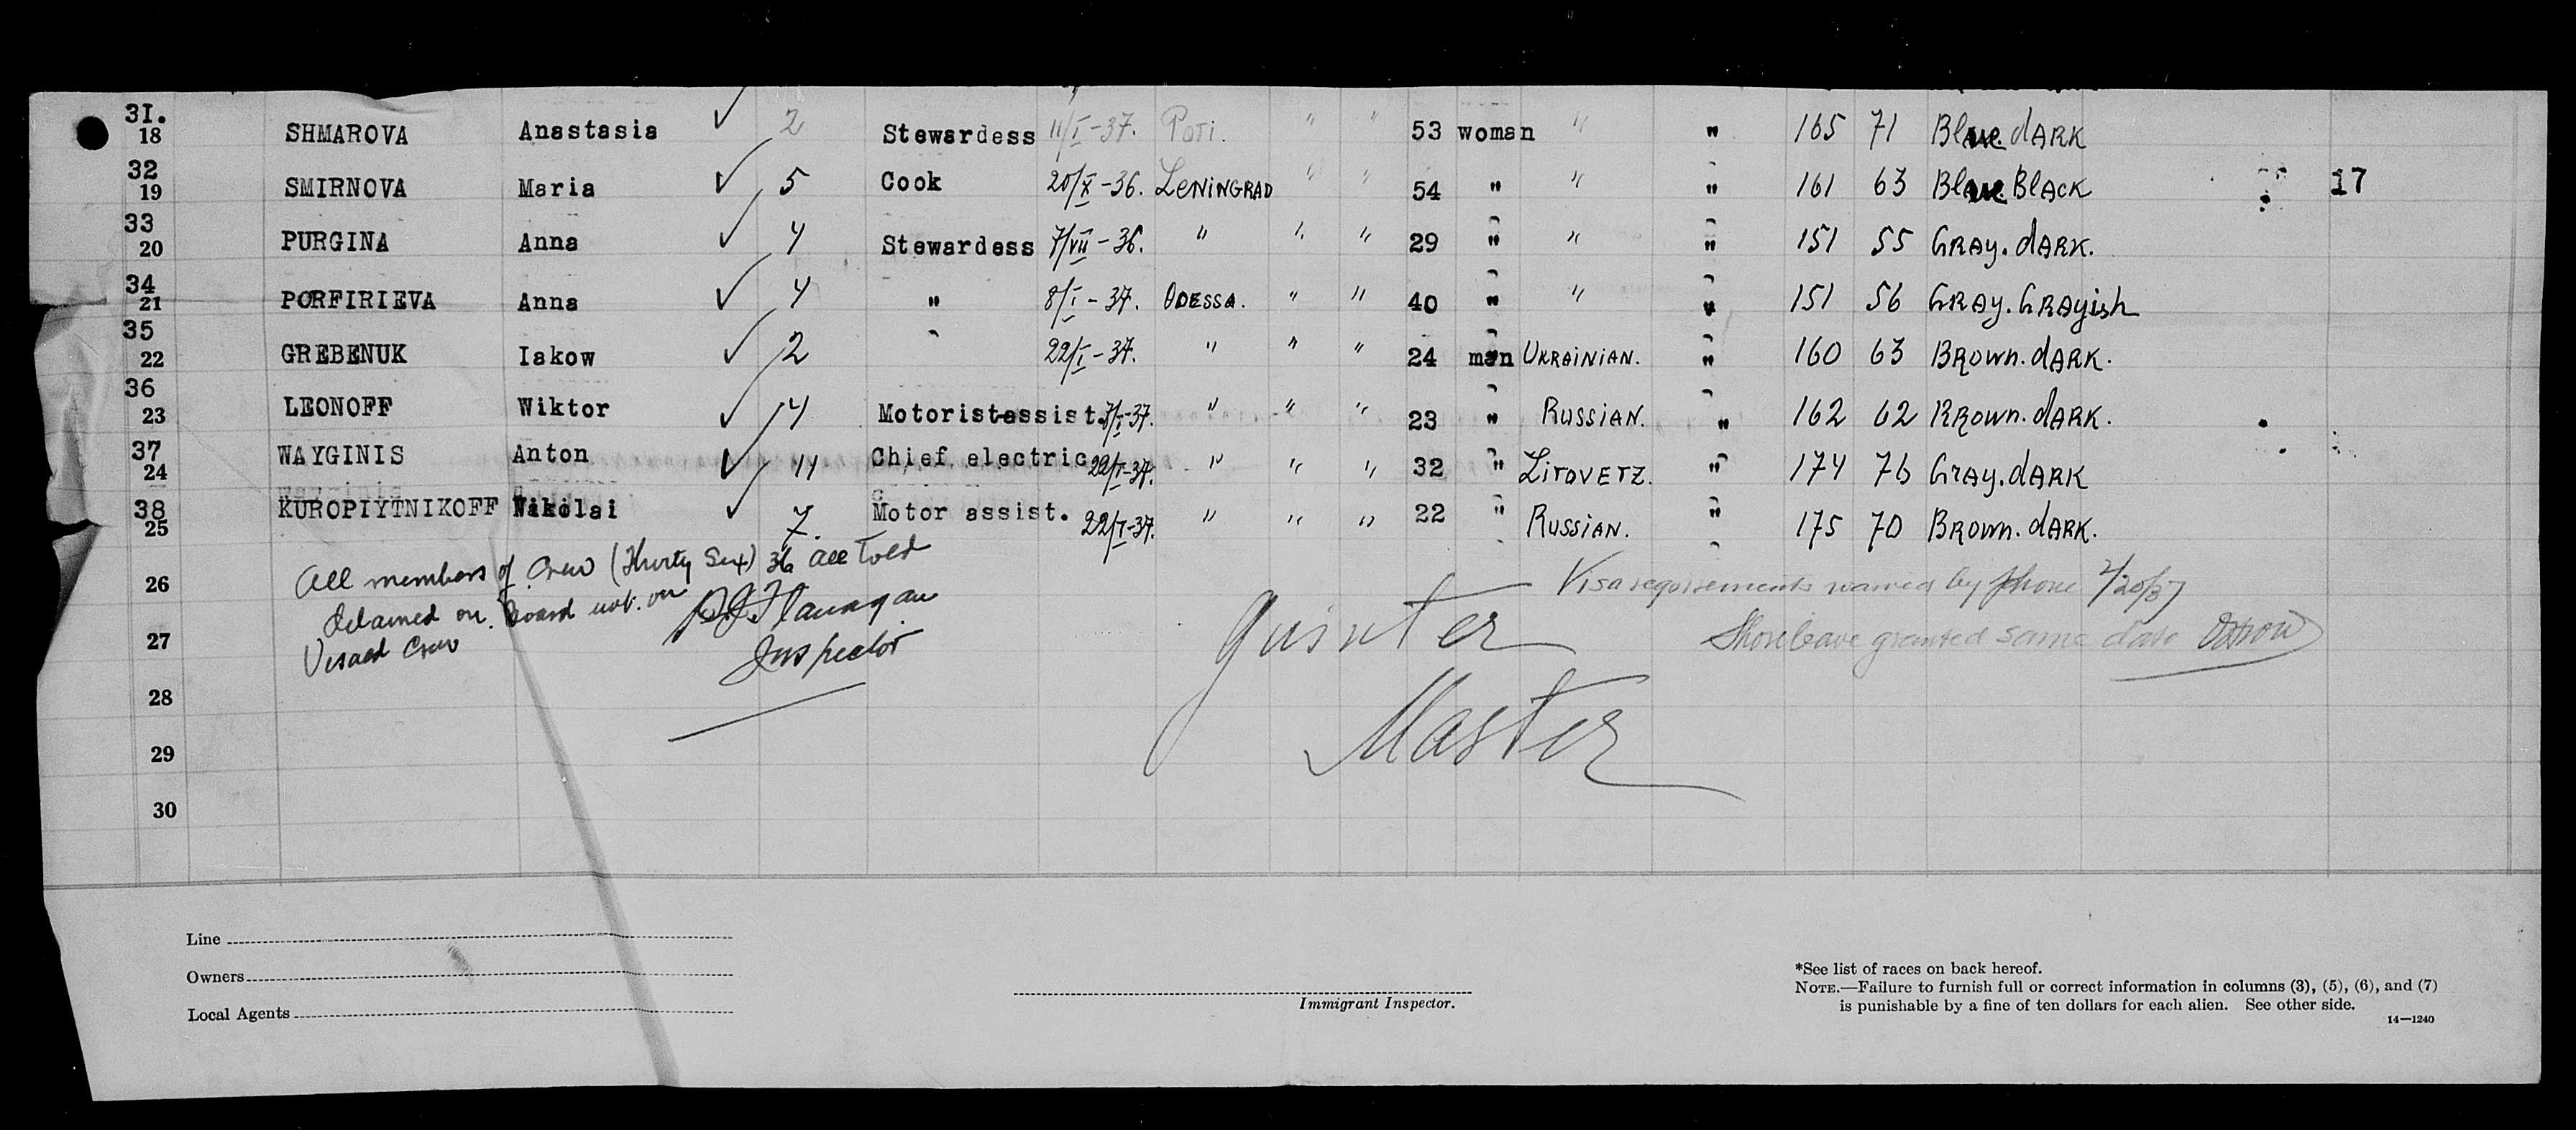 31.
18 SHMAROVA Anastasia ✓ 2 Stewardess 11/I-37. Poti. " " 53 woman " " 165 71 Blue. dARK
32
19 SMIRNOVA Maria ✓ 5 Cook 20/X-36. LENINGRAD " " 54 " " " 161 63 Blue. BlAcK 17
33
20 PURGINA Anna ✓ 4 Stewardess 7/VII-36. " " " 29 " " " 151 55 GRAy. dARK.
34
21 PORFIRIEVA Anna ✓ 4 " 8/I-37. ODESSA. " " 40 " " " 151 56 GRAy. GRAyish
35
22 GREBENUK Iakow ✓ 2 22/I-37. " " " 24 man UKRAINIAN. " 160 63 BROwn. dARK.
36
23 LEONOFF Wiktor ✓ 4 Motorist-assist. 7/I-37. " " " 23 " RUSSIAN. " 162 62 BROwn. dARK.
37
24 WAYGINIS Anton ✓ 11 Chief electric 22/I-37. " " " 32 " LITOVETZ. " 174 76 GrAy. dARK
38
25 KUROPIYTNIKOFF Nikolai ✓ 7. Motor assist. 22/I-37. " " " 22 " RUSSIAN. " 175 70 BROwn. dARK.
26 All members of Crew (Thirty Six) 36 all Told Visa requirements waived by phone 2/20/37
detained on board not on
27 Visaed Crew P.J. Flanagan Inspector Shore leave granted same date
28 Master
29
30
Line
Owners
Local Agents
Immigrant Inspector.
*See list of races on back hereof.
NOTE.—Failure to furnish full or correct information in columns (3), (5), (6), and (7)
is punishable by a fine of ten dollars for each alien. See other side.
14—1240